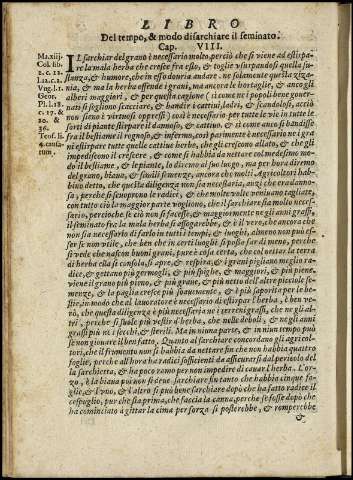 LIBRO
Del tempo, & modo di sarchiare il seminato.
Cap. VIII.
Ma.xiij.
Col. lib.
2. c. 12.
l.12.c.2.
Vng.l.1.
Geor.
Pl. l.18.
c. 17. &
20. &
36.
Teof. li.
4. causa-
rum.
IL sarchiar del grano è necessario molto, perciò che si viene ad estirpa-
re la mala herba che cresce fra esso, & toglie usurpandosi quella su-
stanza, & humore, che in esso doveria andare. ne solamente questa ziza-
nia, & ma la herba offende i grani, ma ancora le hortaglie, & anco gli
alberi maggiori, & per questa cagione (si come ne i popoli bene gouer-
nati si sogliono scacciare, & bandir i cattiui, ladri, & scandolosi, acciò
non sieno i virtuosi oppressi) così è necessario per tutte le vie in tutte le
sorti di piante sterpare il dannoso, & cattiuo, & sì come anco si bandisse
fra il bestiame il rognoso, & infermo, così parimente è necessario ne i gra
ni estirpare tutte quelle cattiue herbe, che gli crescono allato, & che gli
impediscono il crescere, & come si habbia da nettare col mederlo me mo-
do il bestiame, & le piante, lo diremo al suo luogo, ma per hora diremo
del grano, biaua, & simili semenze, ancora che molti Agricoltori hab-
bino detto, che questa diligenza non sia necessaria, anzi che era danno-
sa, perche si scuoprono le radici, & che molte volte veniuano tagliate,
con tutto ciò la maggior parte vogliono, che il sarchiare sia molto neces-
sario, percioche se ciò non si facesse, & maggiormente ne gli anni grassi,
il seminato fra la mala herba si affogarebbe, & è il vero, che ancora che
non sia necessario di farlo in tutti i tempi, & luoghi, almeno non può es-
ser se non utile, che ben che in certi luoghi si possa far di meno, perche
si vede che nascon buoni grani, pure è cosa certa, che col nettar la terra
di herba ella si consola, si apre, & respira, & i grani pigliano meglio ra-
dice, & gettano più germogli, & più spighe, & maggiori, & più piene.
viene il grano più pieno, & più graue, & più netto dell'altre picciole se-
menze, & la paglia cresce più soauemente, & è più saporita per le be-
stie, in modo che al lauoratore è necessario di estirpar l'herba, è ben ve-
rò, che questa diligenza è più necessaria ne i terreni grassi, che ne gli al-
tri, perche si suole più vestir d'herba, che nelle deboli, & ne gli anni
grassi più ne i secchi, & sterili. Ma in niuna parte, & in niun tempo può
se non giouare il ben fatto. Quanto al sarchiare concordano gli agricol-
tori, che il frumento non si habbia da nettare sin che non habbia quattro
foglie, perche all'hora ha radici sofficienti da assicurarsi dal pericolo del
la sarchietta, & ha poco ramo per non impedire di cauar l'herba. L'or-
zo, è la biaua più non si deue sarchiare fin tanto che habbia cinque fo-
glie, & l'vno, & l'altro si può bene sarchiare dopò che ha fatto radice il
cespuglio, pur che sia prima, che faccia la canna, perche se fosse dopò che
ha cominciato à gittar la cima per forza si pesterebbe, & romperebbe
&